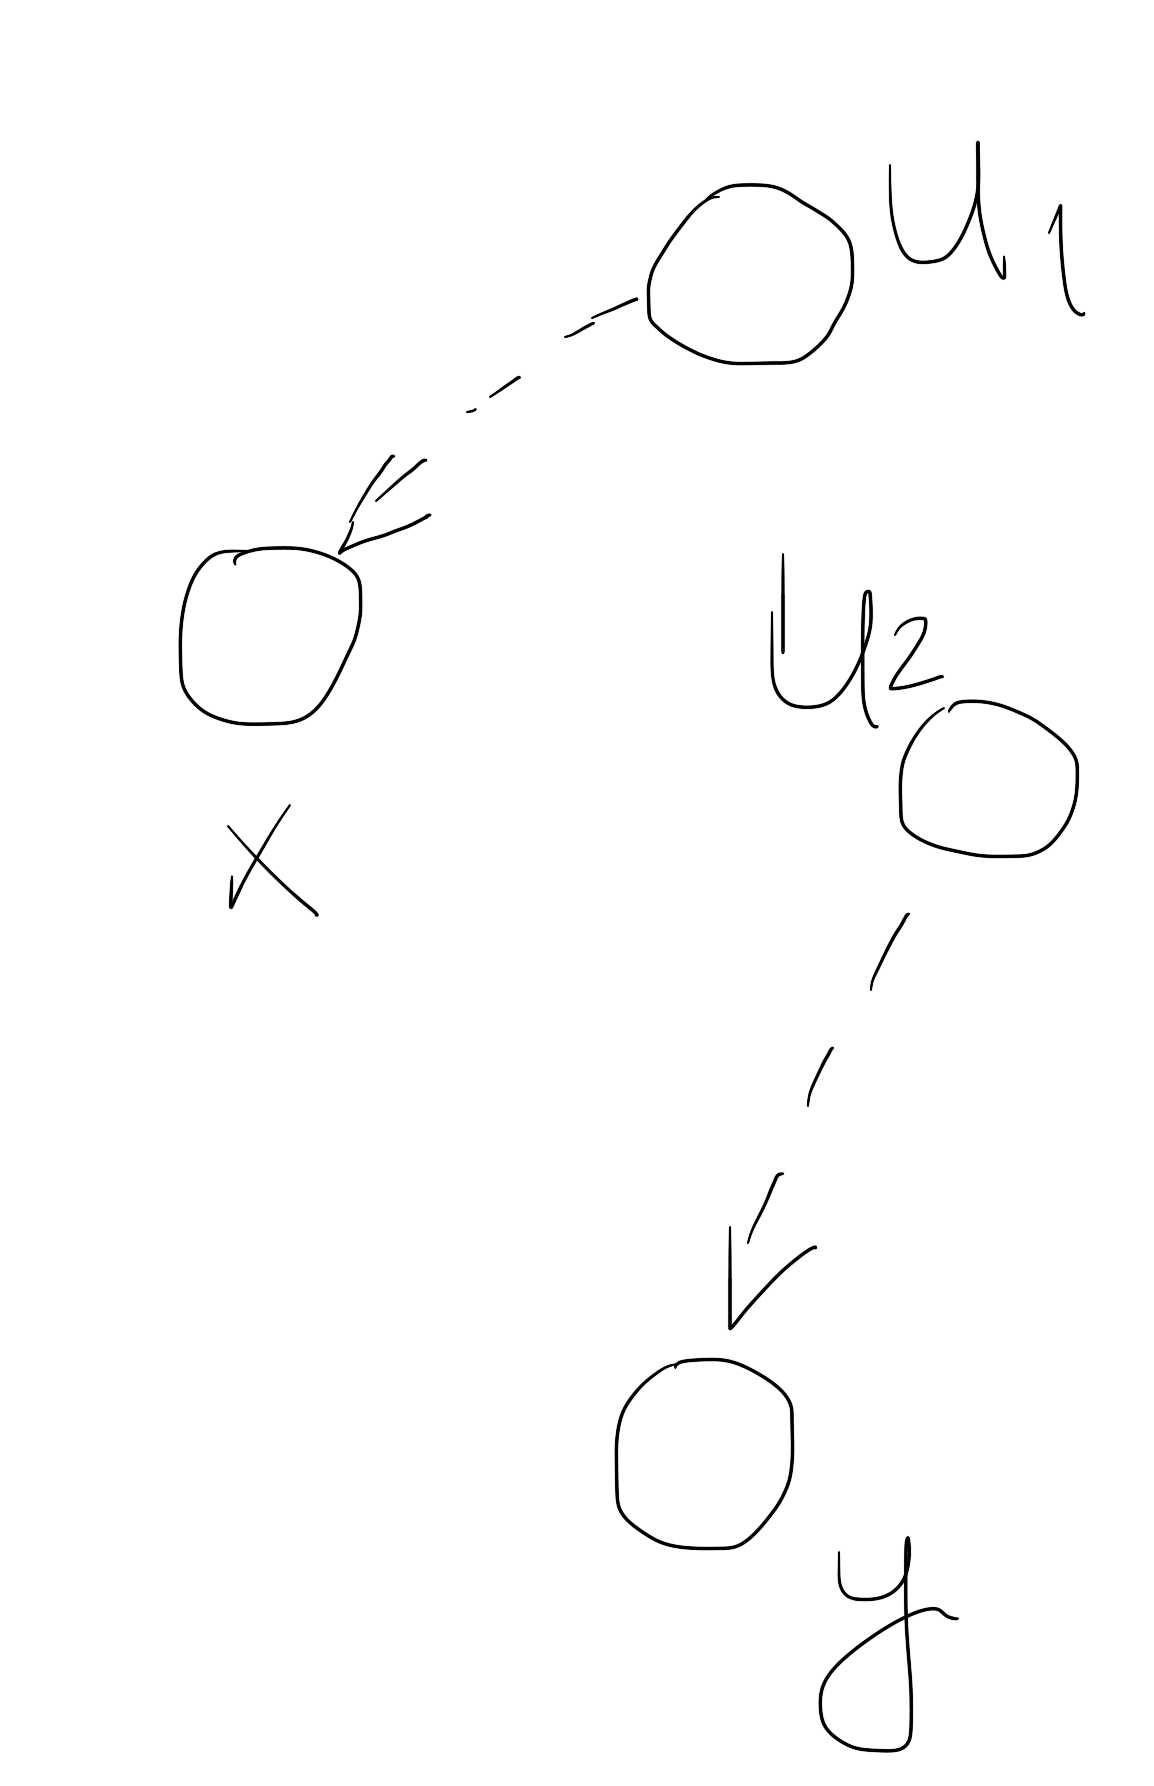 U1
U2
x
y